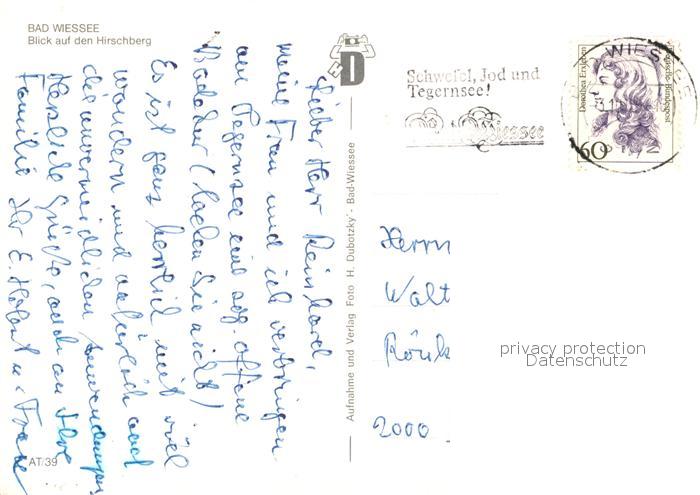 BAD WIESSEE
Blick auf den Hirschberg
Lieber Herr Reinhard,
meine Frau und ich verbringen
am Tegernsee eine sog. offene
Badekur (lachen Sie nicht)
Es ist ganz herrlich mit viel
wandern und natürlich auch
die unvermeidlichen
Herzliche Grüße, auch an Ihre
Familie Ihr E. u. Frau
AT/39
Aufnahme und Verlag Foto H. Dubotzky - Bad-Wiessee
D
Schwefel, Jod und
Tegernsee!
Bad Wiessee
WIESSEE
Dorothea Erxleben
Deutsche Bundespost
60
Herrn
Walt
2000
privacy protection
Datenschutz